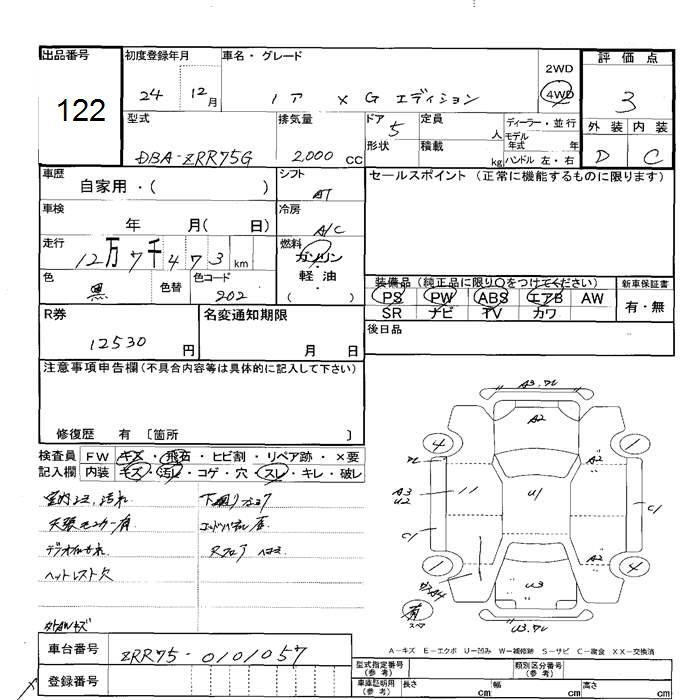 出品番号
122
初度登録年月
24 12月
車名・グレード
ノア X G エディション
2WD
4WD
評価点
3
外装 内装
D C
型式
DBA-ZRR75G
排気量
2,000 CC
ドア 5
形状
定員 人
積載 kg
ディーラー・並行
モデル
年式 年
ハンドル 左・右
車歴
自家用・( )
シフト
AT
セールスポイント (正常に機能するものに限ります)
車検
年 月( 日)
冷房
A/C
走行
12万7千473km
燃料
ガソリン
軽油
( )
色
黒
色替
色コード
202
装備品 (純正品に限り○をつけてください)
PS PW ABS エアB AW
SR ナビ TV カワ
新車保証書
有・無
R券
12530 円
名変通知期限
月 日
後日品
注意事項申告欄 (不具合内容等は具体的に記入して下さい)
修復歴 有 〔箇所 〕
検査員
記入欄
FW キズ・飛石・ヒビ割・リペア跡・×要
内装 キズ・汚レ・コゲ・穴・スレ・キレ・破レ
ヘットレスト欠
A3.ワレ
A2
4
1
ワレ
A3
U2
U1
C1
C1
A2
A2
1
4
U3
有
スペア
U3.ワレ
A－キズ E－エクボ U－凹み W－補修跡 S－サビ C－腐食 XX－交換済
車台番号
ZRR75-0101057
登録番号
型式指定番号
(参考)
類別区分番号
(参考)
車庫証明用
(参考)
長さ cm
幅 cm
高さ cm